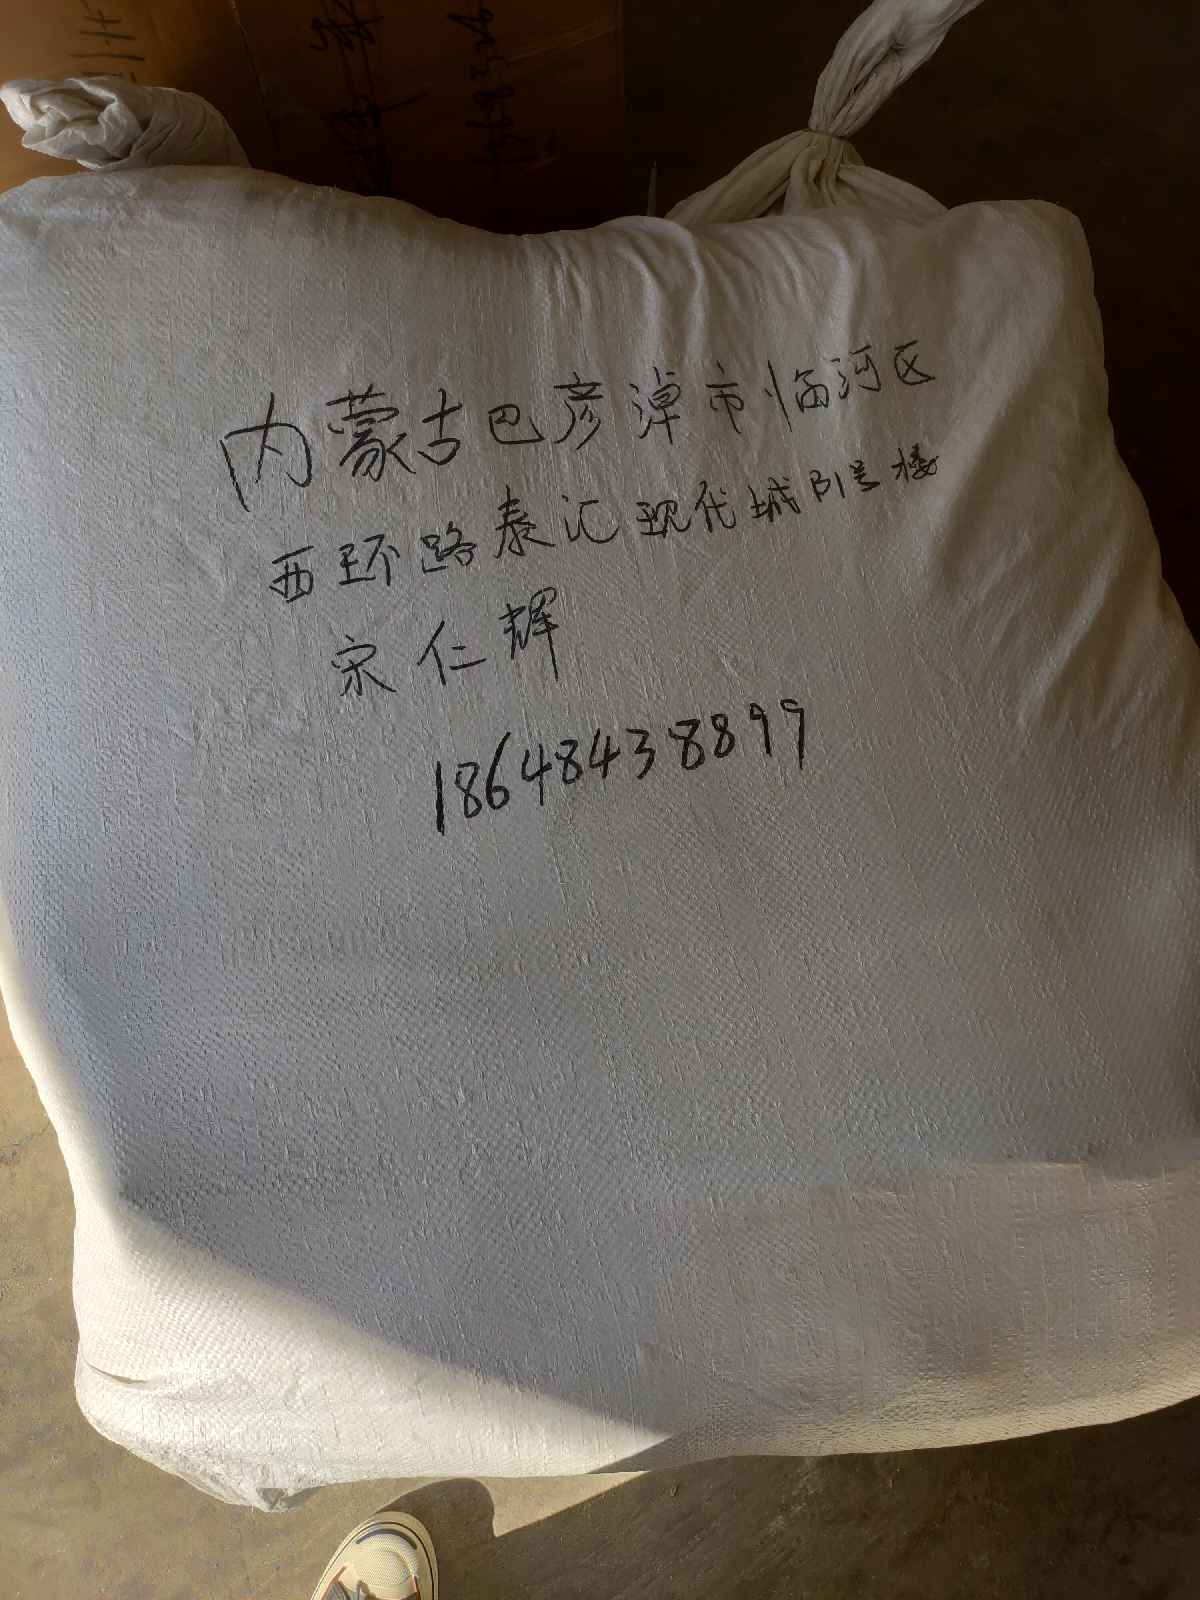 内蒙古巴彦淖市临河区
西环路泰汇现代城B1号楼
宋仁辉
18648438899